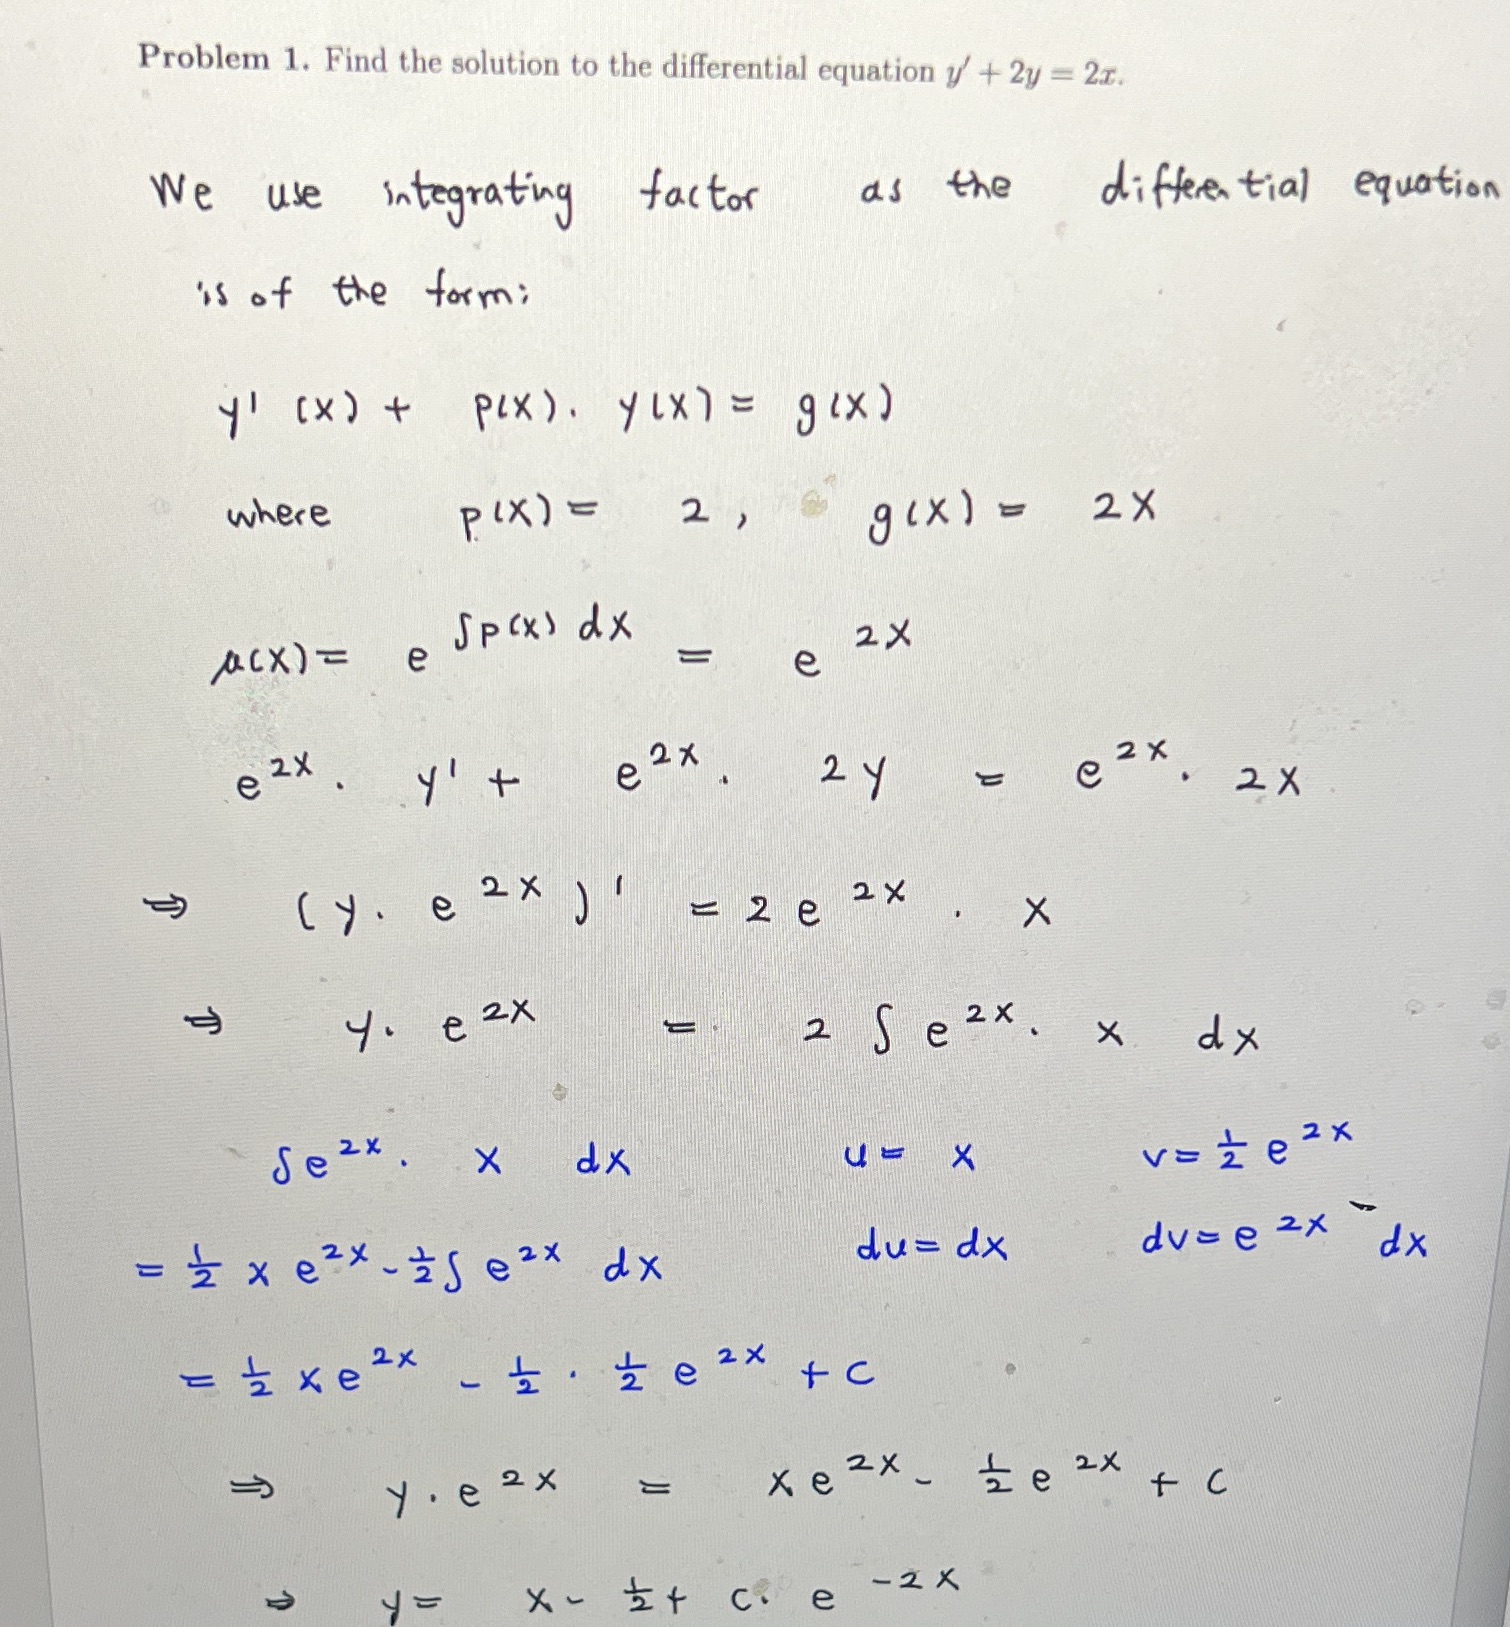 Problem 1. Find the solution to the differential equation y′ + 2y = 2x.
We use integrating factor as the differential equation
is of the form:
y' (x) + p(x). y(x) = g(x)
where p(x) = 2, g(x) = 2x
μ(x) = e^{∫p(x) dx} = e^{2x}
e^{2x} . y' + e^{2x} . 2y = e^{2x} . 2x
⇒ (y. e^{2x})' = 2e^{2x} . x
⇒ y. e^{2x} = 2 ∫ e^{2x} . x dx
∫e^{2x} . x dx u = x v = 1/2 e^{2x}
= 1/2 x e^{2x} - 1/2 ∫ e^{2x} dx du = dx dv = e^{2x} dx
= 1/2 x e^{2x} - 1/2 . 1/2 e^{2x} + c
⇒ y . e^{2x} = x e^{2x} - 1/2 e^{2x} + c
⇒ y = x - 1/2 + c. e^{-2x}